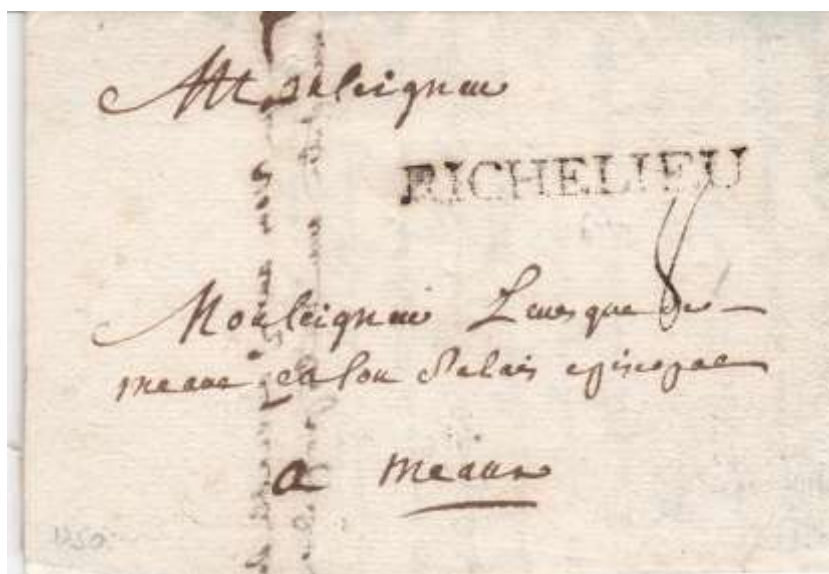 Monseigneur
RICHELIEU
8
Monseigneur Leuesque de
meaux en son Palais episcopal
a meaux
1750